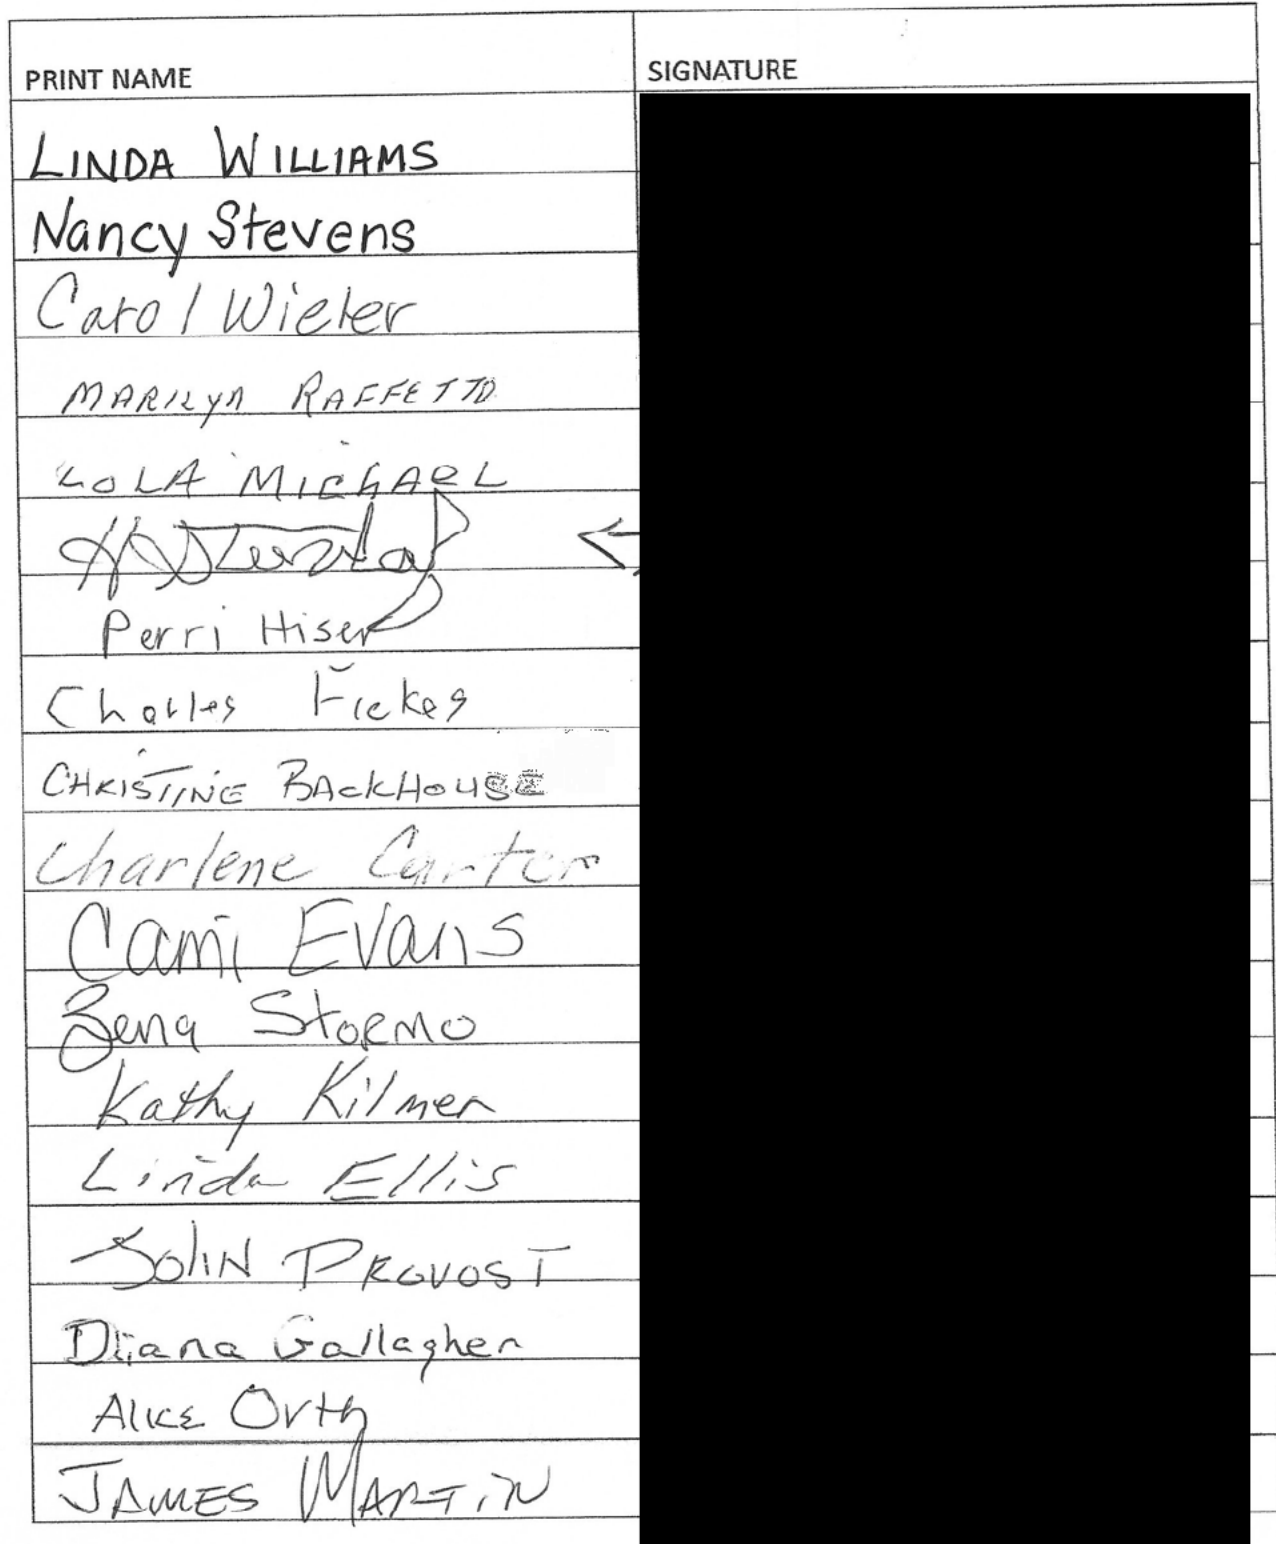 PRINT NAME SIGNATURE
LINDA WILLIAMS
Nancy Stevens
Carol Wieler
MARILYN RAFFETTO
LOLA MICHAEL
Perri Hiser
Charles Fickes
CHRISTINE BACKHOUSE
Charlene Carter
Cami Evans
Zena STORMO
Kathy Kilmer
Linda Ellis
JOHN PROVOST
Diana Gallagher
ALICE Orth
JAMES MARTIN